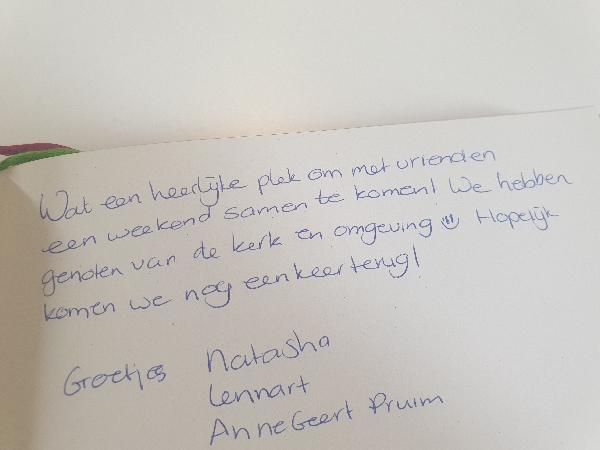 Wat een heerlijke plek om met vrienden
een weekend samen te komen! We hebben
genoten van de kerk en omgeving ☺ Hopelijk
komen we nog een keer terug!
Groetjes Natasha
Lennart
AnneGeert Pruim